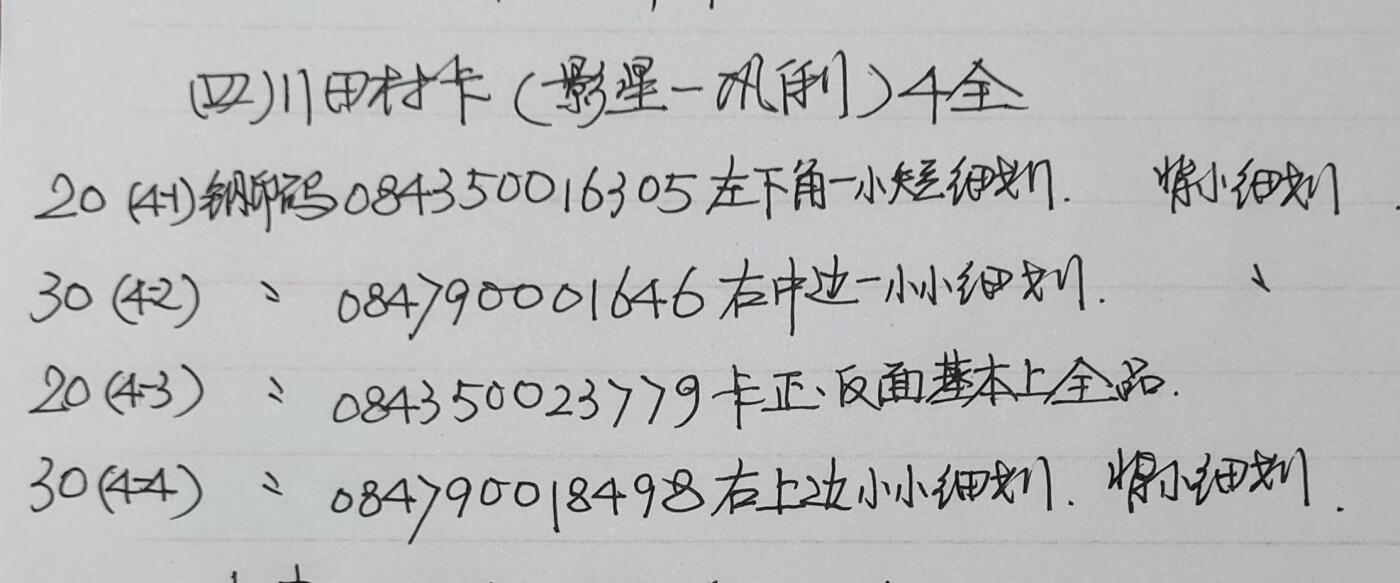 (四)川田村卡(影星一巩俐)4全
20 (4-1)钢印码084350016305左下角一小短细划. 背小细划.
30 (4-2) 〃 084790001646右中边一小小细划. 、
20 (4-3) 〃 084350023779卡正、反面基本上全品.
30 (4-4) 〃 084790018498右上边小小细划. 背小细划.